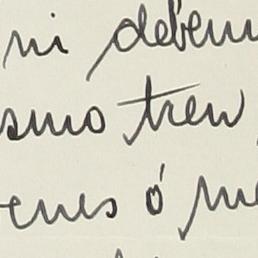 ni debem
smo tren
enes ó me